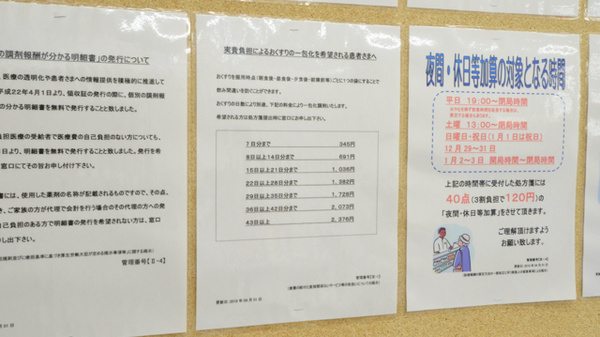 の調剤報酬が分かる明細書」の発行について
、医療の透明化や患者さまへの情報提供を積極的に推進して
平成22年4月1日より、領収証の発行の際に、個別の調剤報酬
の分かる明細書を無料で発行することと致しました。
負担医療の受給者で医療費の自己負担のない方についても、
日より、明細書を無料で発行することと致しました。発行を
窓口にてその旨お申し付け下さい。
書には、使用した薬剤の名称が記載されるものですので、その点、
き、ご家族の方が代理で会計を行う場合のその代理の方への発
自己負担のある方で明細書の発行を希望されない方は、窓口
申し出下さい。
管理番号【Ⅱ-4】
実費負担によるおくすりの一包化を希望される患者さまへ
おくすりを服用時点（朝食後・昼食後・夕食後・就寝前等）ごとに1つの袋にすることで
飲み間違いを防ぐことができます。
おくすりの日数により別途、下記の料金により一包化調剤いたします。
希望される方は処方箋提出時に窓口にお申し出下さい。
7日分まで 345円
8日以上14日分まで 691円
15日以上21日分まで 1,036円
22日以上28日分まで 1,382円
29日以上35日分まで 1,728円
36日以上42日分まで 2,073円
43日以上 2,376円
夜間・休日等加算の対象となる時間
平日 19:00～閉局時間
土曜 13:00～閉局時間
日曜日・祝日（1月1日は祝日）
12月29～31日
1月2～3日 開局時間～閉局時間
上記の時間帯に受付した処方箋には
40点（3割負担で120円）の
「夜間・休日等加算」をさせて頂きます。
ご理解頂けますよう
お願い致します。